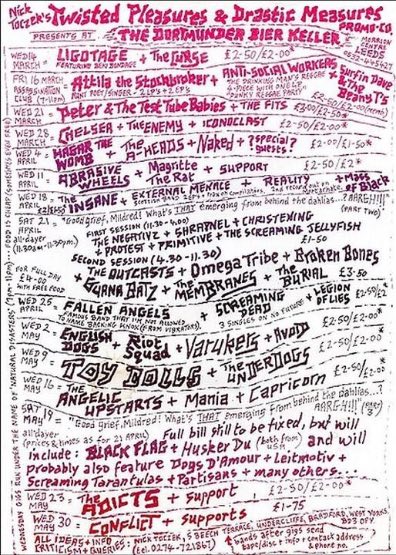 Nick Toczek's Twisted Pleasures & Drastic Measures
PROMO-CO.
PRESENTS AT THE DORTMUNDER BIER KELLER
MORRION CENTRE LEEDS
WED 14 MARCH = LIGOTAGE + THE CURSE £2-50/£2-00*
FEATURING BEKI BONDAGE
FRI 16 MARCH Attila the Stockbroker + ANTI-SOCIAL WORKERS + Surfin Dave & The Beany T's
ASSASSINATION CLUB (7-11pm) PUNT POET/SINGER - 2 LP'S + 2 EP'S
£2-50/£2-00*
WED 21 MARCH = Peter & The Test Tube Babies + THE FITS £3-00/£2-50*
WED 28 MARCH = CHELSEA + THE ENEMY + ICONOCLAST £2-50/£2-00*
WED 4 APRIL = HAGAR THE WOMB + THE A-HEADS + Naked + ?special? guests! £2-00/£1-50*
WED 11 APRIL = ABRASIVE WHEELS + Magritte The Rat + SUPPORT £2-50/£2*
WED 18 APRIL = THE INSANE + EXTERNAL MENACE + REALITY + Mass of Black
SAT 21 APRIL = "Good grief, Mildred! What's THAT emerging from behind the dahlias...? AARGH!!!" (PART TWO)
all-dayer (11.30am-11.30pm)
FIRST SESSION (11.30-4.00)
THE NEGATIVZ + SHRAPNEL + CHRISTENING
+ PROTEST + PRIMITIVE + THE SCREAMING JELLYFISH
£1-50
SECOND SESSION (4.30-11.30)
FOR FULL DAY £4-00 WITH FREE FOOD
THE OUTCASTS + Omega Tribe + Broken Bones
+ GUANA BATZ + THE MEMBRANES + THE BURIAL £3-50
WED 25 APRIL = FALLEN ANGELS + SCREAMING DEAD + LEGION OF LIES £2-50/£2*
3 SINGLES ON NO FUTURE
WED 2 MAY = ENGLISH DOGS + Riot Squad + Varukers + AVOID £2-50/£2-00*
WED 9 MAY = TOY DOLLS + THE UNDERDOGS £2-50/£2-00*
WED 16 MAY = THE ANGELIC UPSTARTS + Mania + Capricorn £2-50/£2-00*
SAT 19 MAY = "Good grief, Mildred! What's THAT emerging from behind the dahlias...? AARGH!!!" (PART 3)
all-dayer (prices & times as for 21 APRIL)
Full bill still to be fixed, but will
include: BLACK FLAG + Husker Du (both from US) and will
probably also feature Dogs D'Amour + Leitmotiv +
Screaming Tarantulas + Partisans + many others...
WED 23 MAY = The ADICTS + support £2-50/£2-00*
WED 30 MAY = CONFLICT + supports £1-75
ALL IDEAS + INFO + CRITICISM + QUERIES: NICK TOCZEK, 5 BEECH TERRACE, UNDERCLIFFE, BRADFORD, WEST YORKS. BD3 0PY.
(tel. 0274-721867)
bands after gigs send tape/disc + info + contact address & phone no.